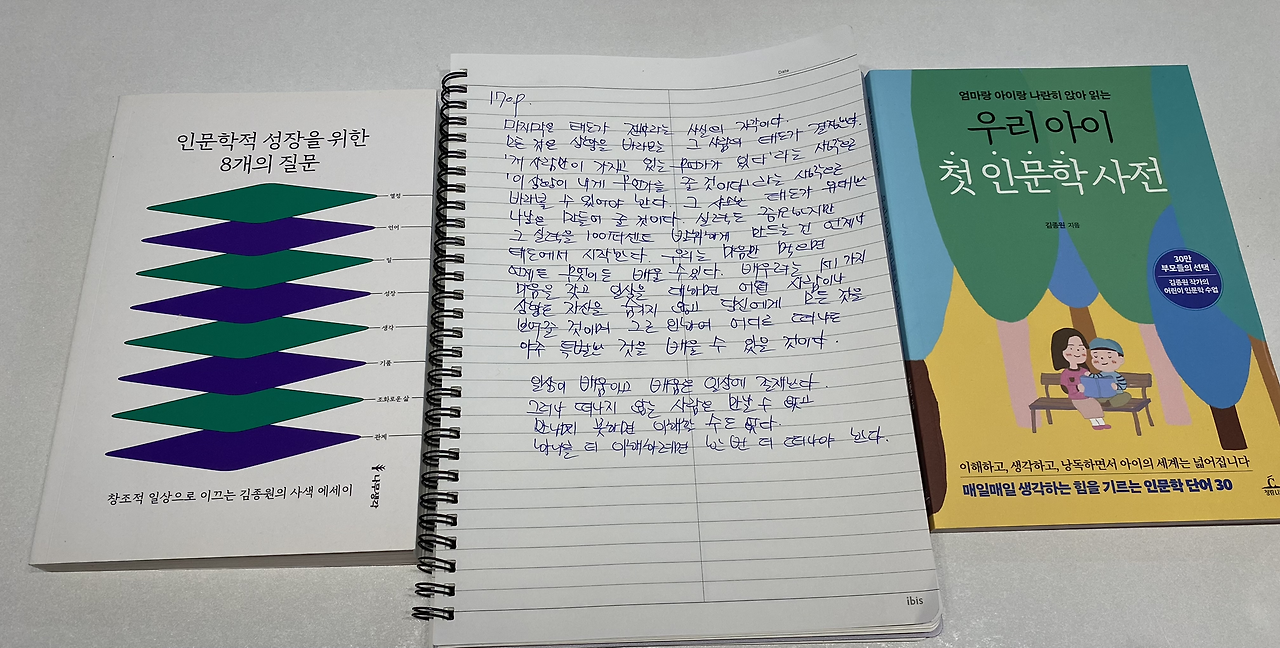 인문학적 성장을 위한
8개의 질문
열정
언어
일
성장
생각
기품
조화로운 삶
관계
창조적 일상으로 이끄는 김종원의 사색 에세이
나무생각
Date
170p.
마지막은 태도가 전부라는 사실의 자각이다.
모든 것은 상황을 바라보는 그 사람의 태도가 결정한다.
'저 사람이 가지고 있는 무언가가 있다'라는 시선으로
'이 상황이 내게 무언가를 줄 것이다'라는 시선으로
바라볼 수 있어야 한다. 그 사소한 태도가 위대한
나날을 만들어 줄 것이다. 실력도 중요하지만
그 실력을 100퍼센트 발휘하게 만드는 건 언제나
태도에서 시작한다. 우리는 마음만 먹으면
언제든 무엇이든 배울 수 있다. 배우려는
마음을 갖고 일상을 대하면 어떤 사람이나
상황도 자신을 숨기지 않고 당신에게 모든 것을
보여줄 것이며 그로 인하여 어디로 떠나도
아주 특별한 것을 배울 수 있을 것이다.
일상이 배움이고 배움은 일상에 존재한다.
그러나 떠나지 않는 사람은 만날 수 없고
만나지 못하면 이해할 수도 없다.
하나를 더 이해하려면 한 번 더 떠나야 한다.
ibis
엄마랑 아이랑 나란히 앉아 읽는
우리 아이
첫 인문학 사전
김종원 지음
30만
부모들의 선택
김종원 작가의
어린이 인문학 수업
이해하고, 생각하고, 낭독하면서 아이의 세계는 넓어집니다
매일매일 생각하는 힘을 기르는 인문학 단어 30